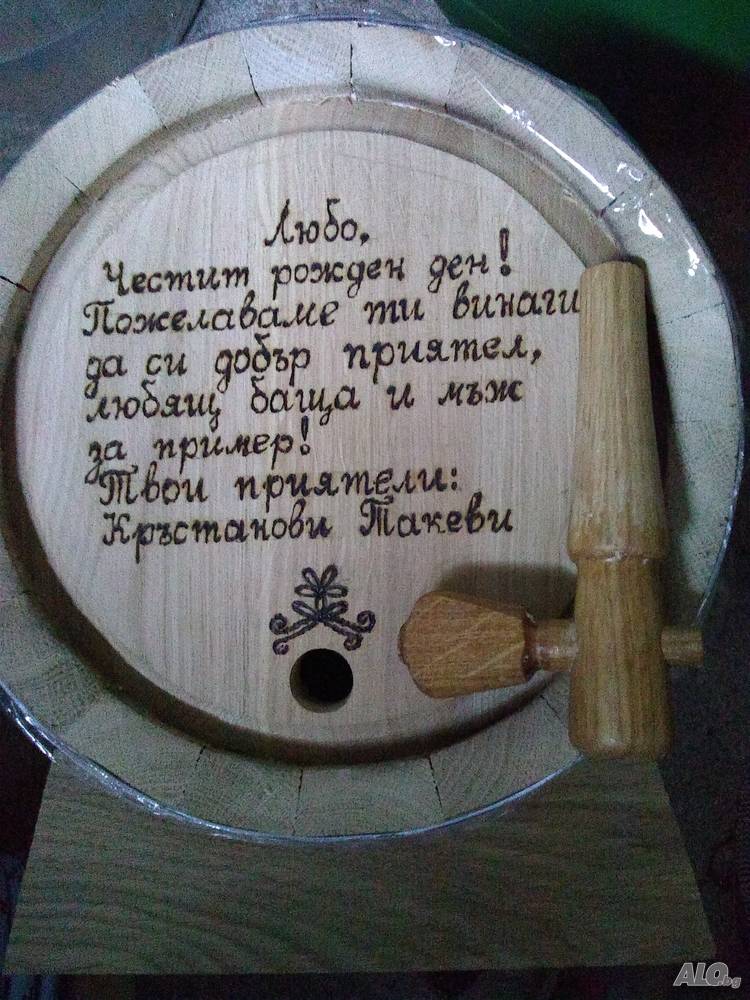 Любо,
Честит рожден ден!
Пожелаваме ти винаги
да си добър приятел,
любящ баща и мъж
за пример!
Твои приятели:
Кръстанови Такеви
ALO.bg